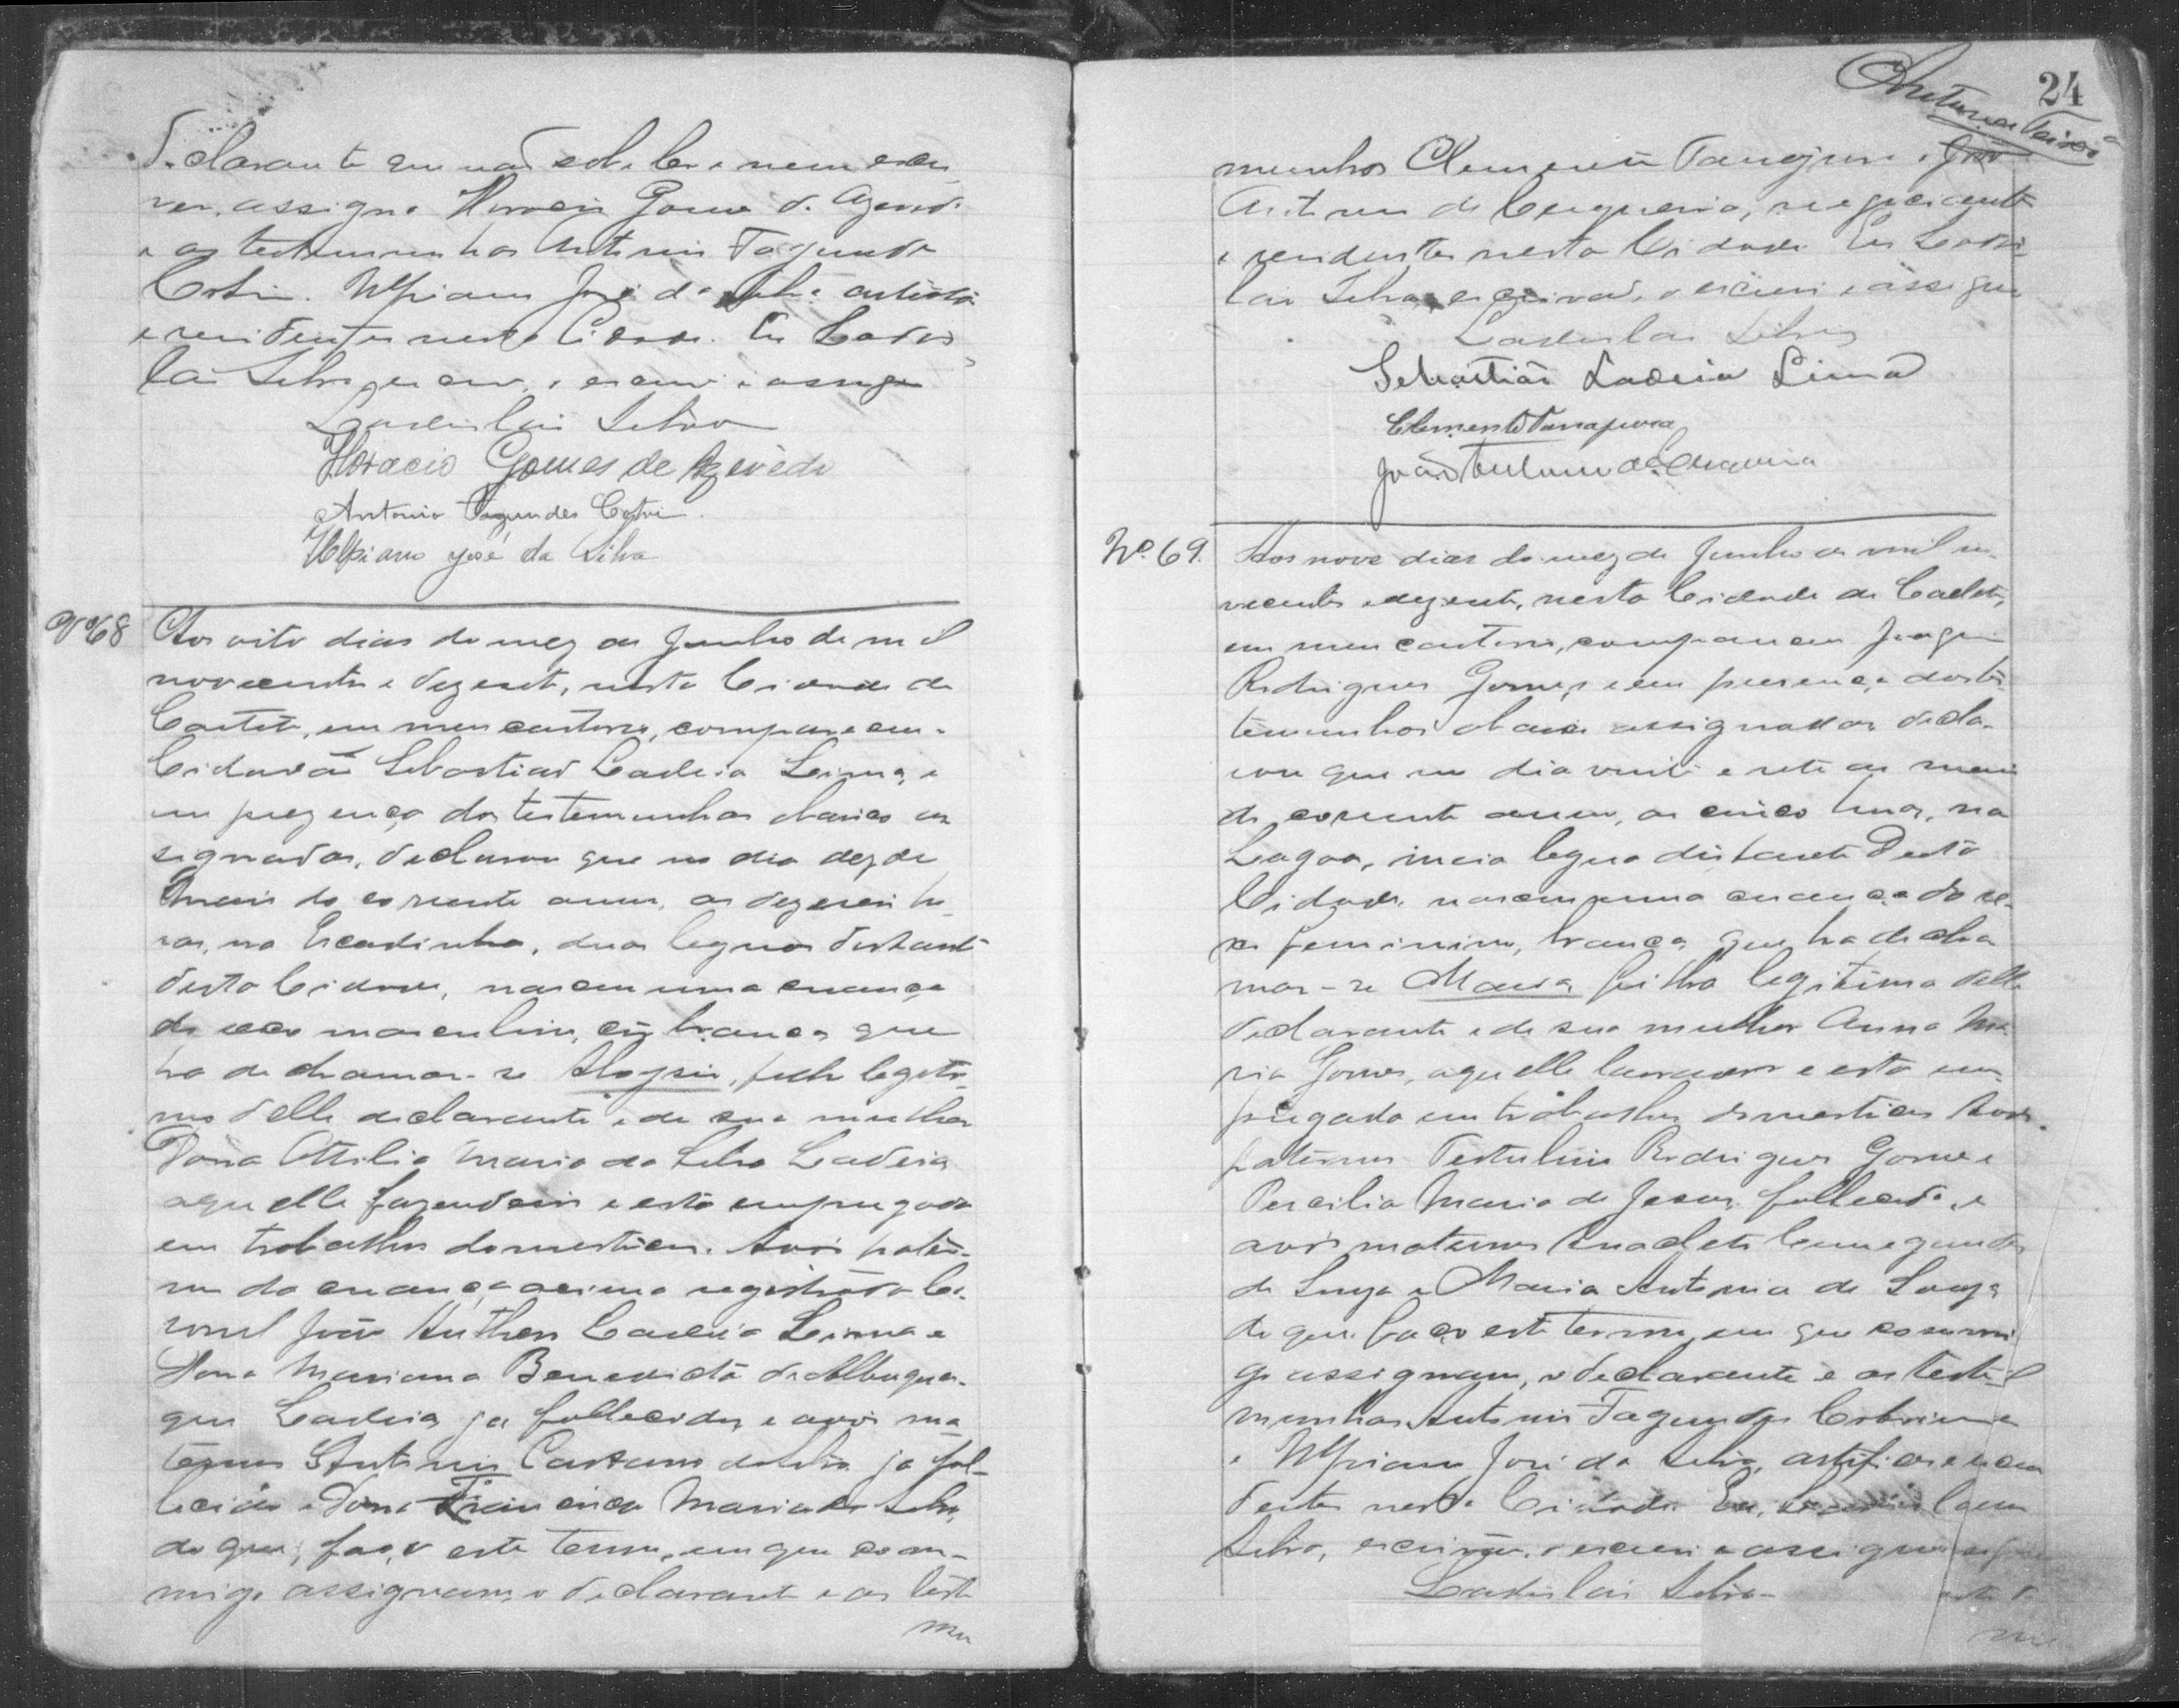 declarante que não sabe ler e nem escre
ver, assigna Horacio Gomes de Azevedo
e as testemunhas Antonio Fagundes
Cotrim. Ulpiano José da Silva artistas
e residentes nesta Cidade. Eu Ladis
láo Silva escrivão, o escrevi e assigno
Ladisláo Silva
Horacio Gomes de Azevêdo
Antonio Fagundes Cotrim.
Ulpiano José da Silva
Nº 68 Aos oito dias do mez de Junho de mil
novecentos e dezesete, nesta Cidade de
Caeteté, em meu cartorio, compareceu o
Cidadão Sebastião Ladeia Lima, e
em prezença das testemunhas abaixo as
signadas, declarou que no dia dez de
Maio do corrente anno, as dezeseis ho-
ras, na Escadinha, duas leguas distante
desta Cidade, nasceu uma creança
do sexo masculino, côr branca que
ha de chamar-se Aloysio, filho legiti-
mo delle declarante e de sua mulher
Dona Attilia Maria da Silva Ladeia
aquelle fazendeiro e esta empregada
em trabalhos domesticos. Avós pater-
nos da creança acima registrada Co-
ronel João Anthero Ladeia Lima e
Dona Marianna Benedicta de Albuquer-
que Ladeia, já fallecidos, e avós ma
ternos Antonio Caetano da Silva já fal-
lecido e Dona Francisca Maria da Silva,
do que, faço este termo, em que com-
migo assignam, o declarante e as teste
mu
24
munhas Clemente Tanajura e João
Antunes de Cerqueira, negociantes
e residentes nesta Cidade Eu Ladis
láo Silva, escrivão, o escrevi e assigno
Ladisláo Silva
Sebastião Ladeia Lima
Clemente Tanajura
João Antunes de Cerqueira
Nº 69. Aos nove dias do mez de Junho de mil no
vecentos e dezesete, nesta Cidade de Caeteté,
em meu cartorio, compareceu Joaquim
Rodrigues Gomes, e em presença das tes
temunhas abaixo assignadas, decla-
rou que no dia vinte e sete de maio
do corrente anno, as cinco horas, na
Lagoa, meia legua distante desta
Cidade, nasceu uma creança do se-
xo feminino, branca, que ha de cha
mar-se Maria, filha legitima delle
declarante e de sua mulher Anna Ma
ria Gomes, aquelle lavrador e esta em
pregada em trabalhos domesticos Avós
paternos Tertulino Rodrigues Gomes e
Percilia Maria de Jesus, fallecida, e
avós maternos Anacleto
de Souza e Maria Antonia de Souza
do que faço este termo, em que commi
go assignam, o declarante e as teste
munhas Antonio Fagundes Cotrim
e Ulpiano José da Silva, artistas e resi
dentes nesta Cidade. Eu, Ladisláo
Silva, escrivão, o escrevi e assigno
Ladisláo Silva